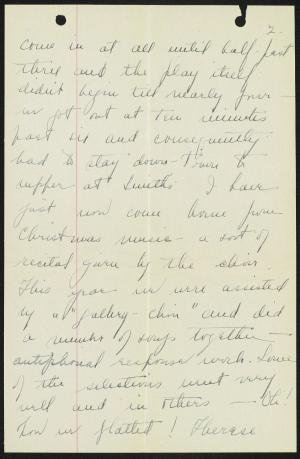 2.
come in at all until half-past
three and the play itself
didn't begin till nearly four —
we got out at ten minutes
past six and consequently
had to stay down-town to
supper at Smiths. I have
just now come home from
Christmas music — a sort of
recital given by the choir.
This year we were assisted
by a "gallery-choir" and did
a number of songs together —
antiphonal response work. Some
of the selections went very
well and in others — Oh!
how we flatted! Therese